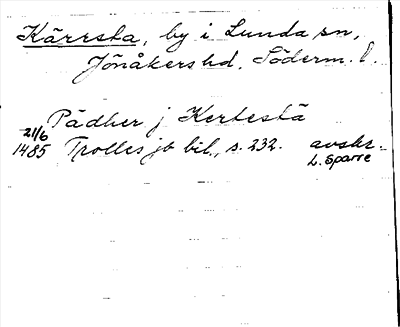 Kärrsta, by i Lunda sn,
Jönåkers hd. Söderm. l.
Pädher j Kerlestä
21/6
1485 Trolles jb bil., s. 232. avskr.
L. Sparre